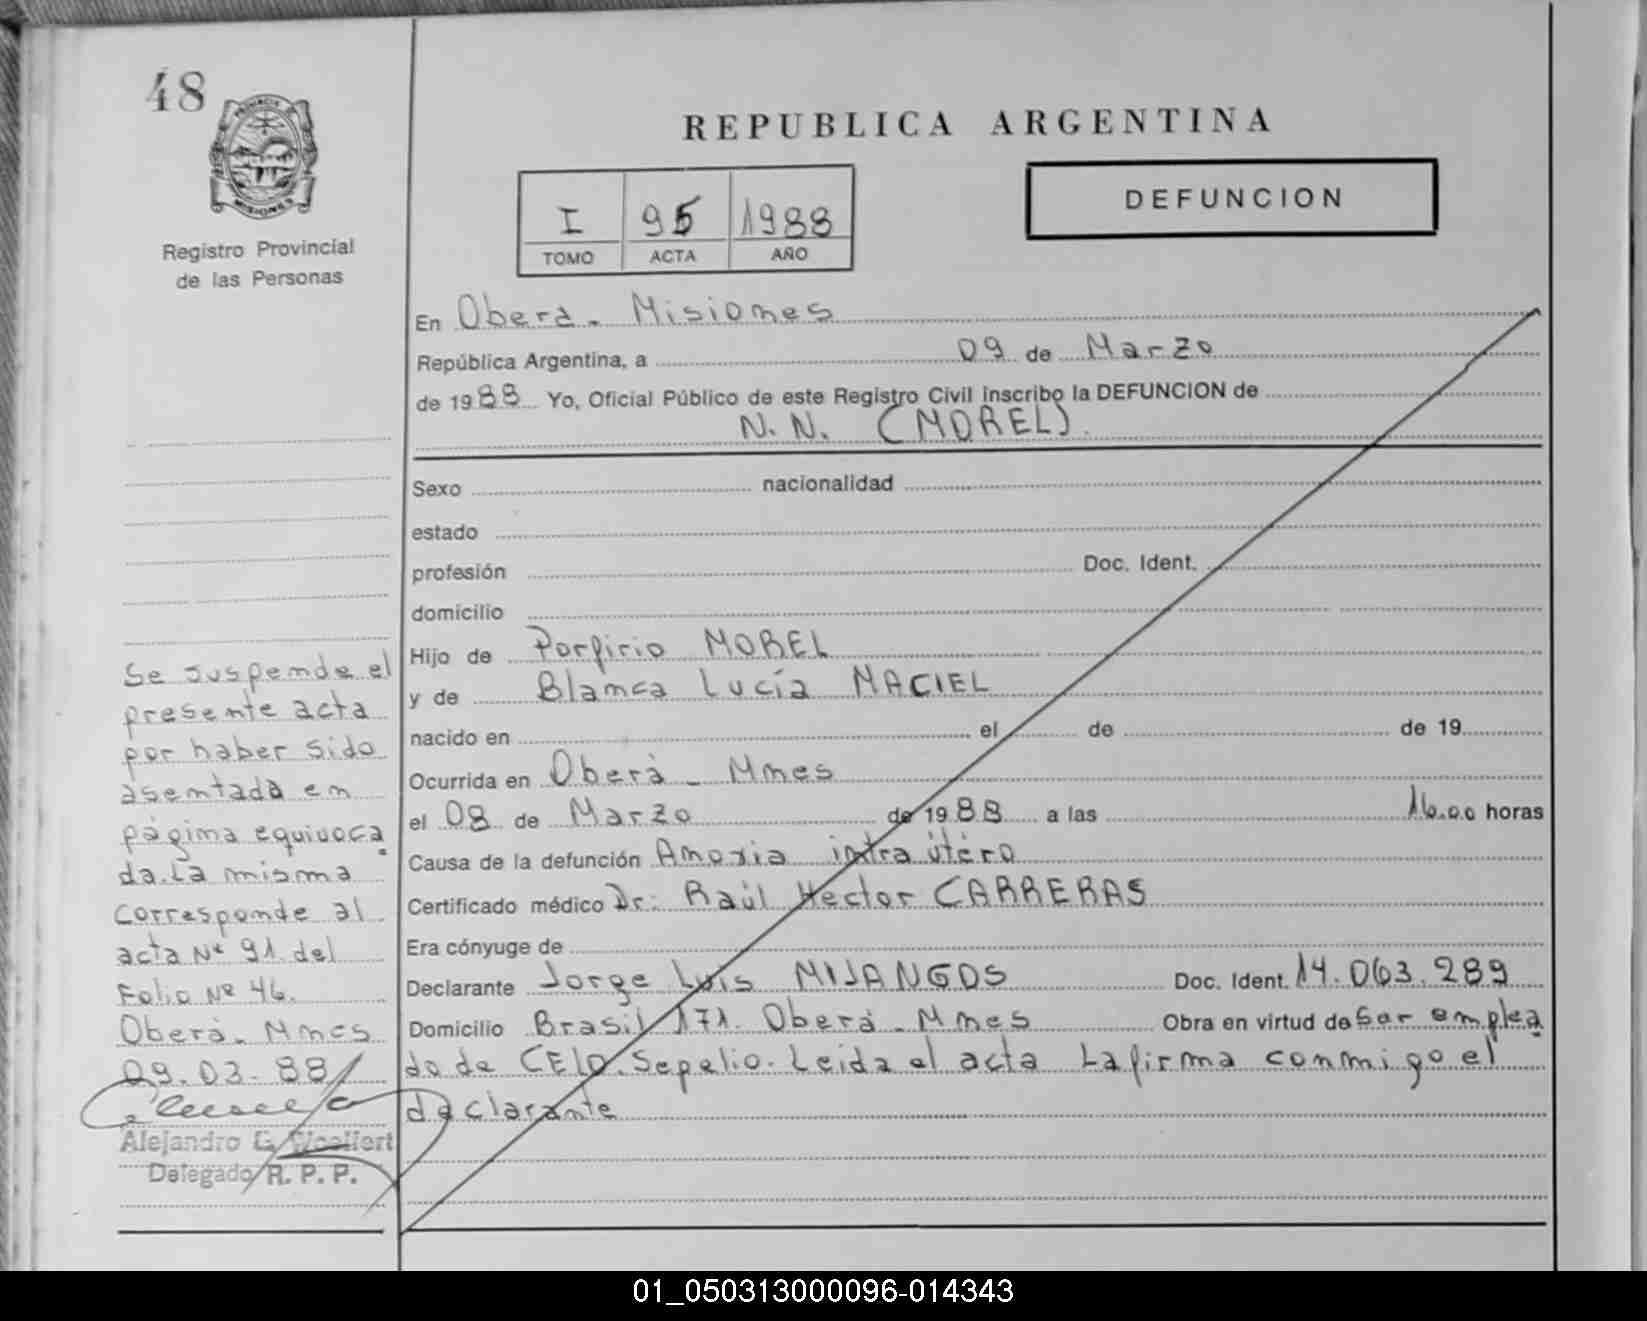 48
PROVINCIA DE
MISIONES
Registro Provincial
de las Personas
REPUBLICA ARGENTINA
I 95 1988
TOMO ACTA AÑO
DEFUNCION
En Oberá - Misiones
República Argentina, a 09 de Marzo
de 1988 Yo, Oficial Público de este Registro Civil inscribo la DEFUNCION de
N. N. (MOREL).
Sexo nacionalidad
estado
profesión Doc. Ident.
domicilio
Hijo de Porfirio MOREL
y de Blanca Lucía MACIEL
nacido en el de de 19
Ocurrida en Oberá - Mnes
el 08 de Marzo de 1988 a las 16.00 horas
Causa de la defunción Anoxia intra útero
Certificado médico Dr: Raúl Hector CARRERAS
Era cónyuge de
Declarante Jorge Luis MIJANGOS Doc. Ident. 14.063.289
Domicilio Brasil 171. Oberá - Mnes Obra en virtud de ser emplea
do de CELO. Sepelio. Leida el acta La firma conmigo el
declarante
Se suspende el
presente acta
por haber sido
asentada en
página equivoca
da. La misma
corresponde al
acta Nº 91 del
Folio Nº 46.
Oberá - Mnes
09.03.88
Alejandro G.
Delegado R. P. P.
01_050313000096-014343